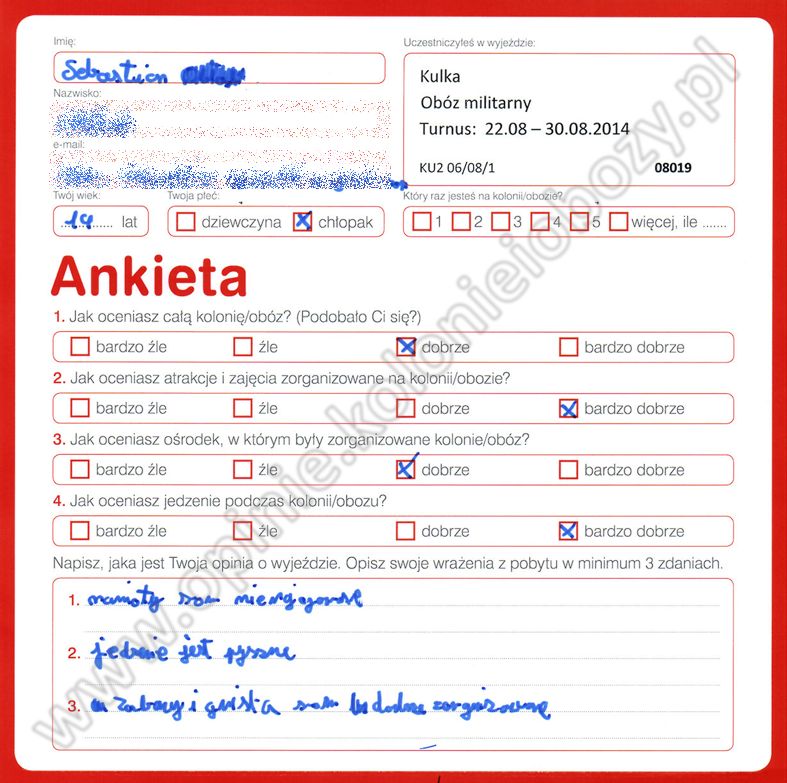 Imię:
Uczestniczyłeś w wyjeździe:
Sebastian
Kulka
Obóz militarny
Turnus: 22.08 – 30.08.2014
KU2 06/08/1 08019
Nazwisko:
e-mail:
Twój wiek:
Twoja płeć:
Który raz jesteś na kolonii/obozie?
14 lat
dziewczyna chłopak
1 2 3 4 5 więcej, ile .......
Ankieta
1. Jak oceniasz całą kolonię/obóz? (Podobało Ci się?)
bardzo źle źle dobrze bardzo dobrze
2. Jak oceniasz atrakcje i zajęcia zorganizowane na kolonii/obozie?
bardzo źle źle dobrze bardzo dobrze
3. Jak oceniasz ośrodek, w którym były zorganizowane kolonie/obóz?
bardzo źle źle dobrze bardzo dobrze
4. Jak oceniasz jedzenie podczas kolonii/obozu?
bardzo źle źle dobrze bardzo dobrze
Napisz, jaka jest Twoja opinia o wyjeździe. Opisz swoje wrażenia z pobytu w minimum 3 zdaniach.
1. namioty som
2. jedzenie jest pyszne
3. zabawy i som
www.opinie.kolonieiobozy.pl